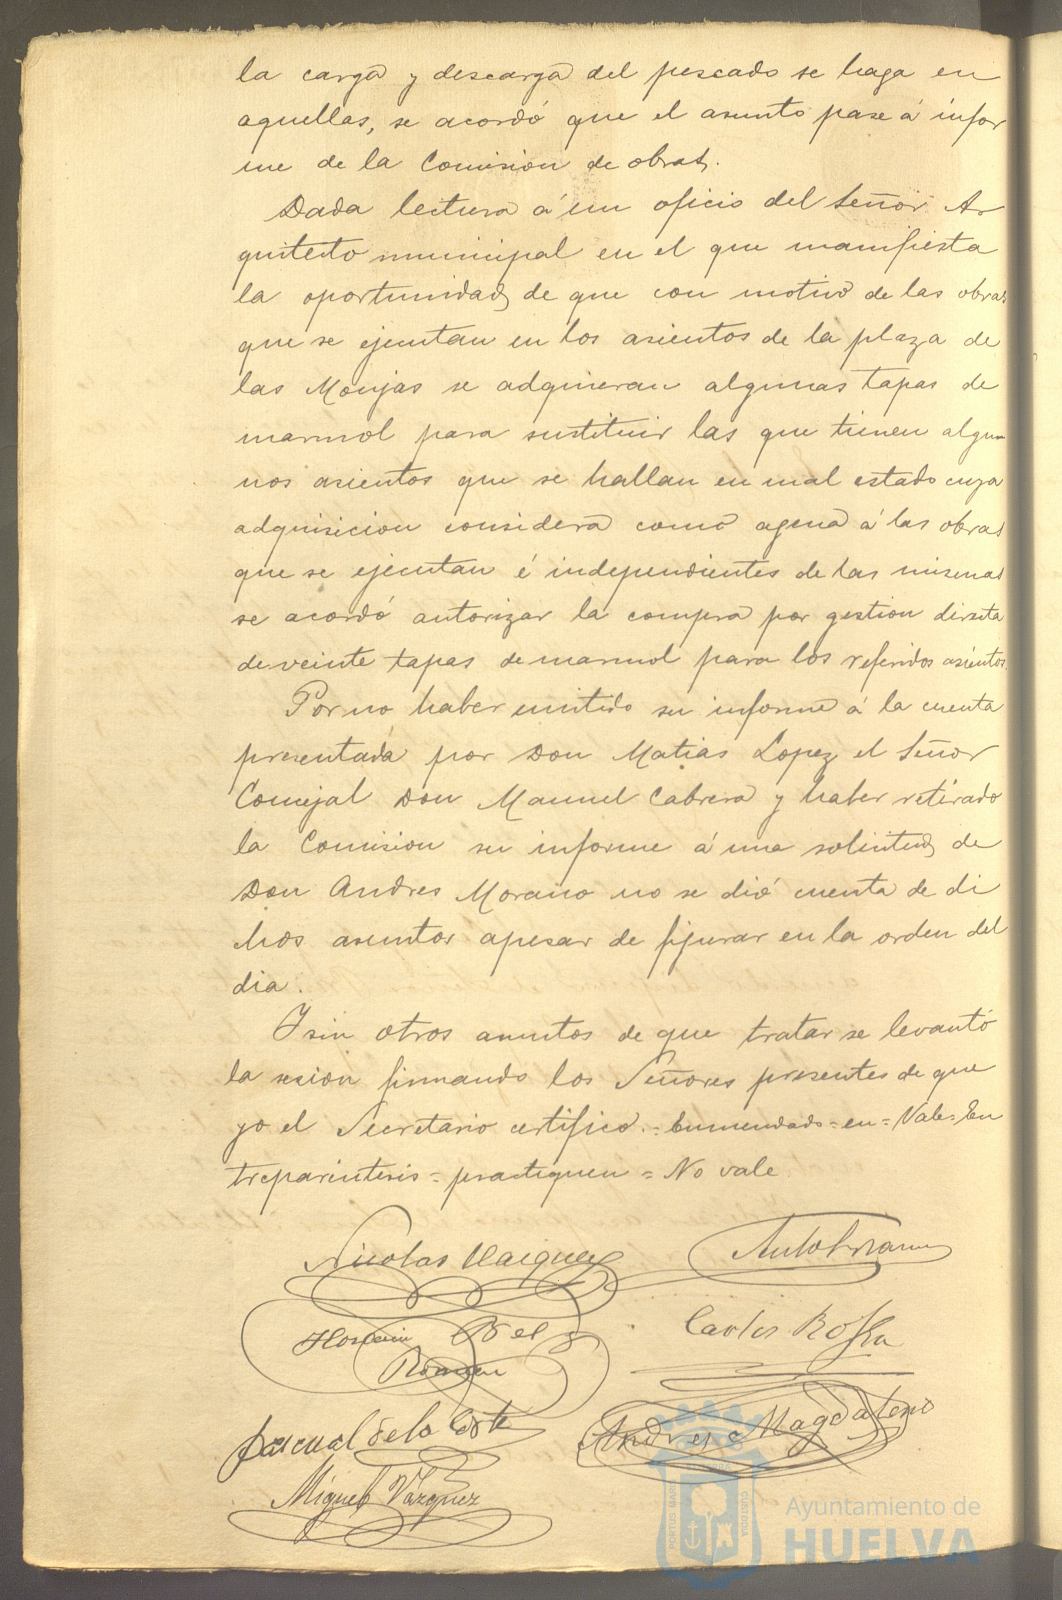 la carga y descarga del pescado se haga en
aquellas, se acordó que el asunto pase á infor
me de la Comision de obras.
Dada lectura á un oficio del Señor Ar
quitecto municipal en el que manifiesta
la oportunidad de que con motivo de las obras
que se ejecutan en los asientos de la plaza de
las Monjas se adquieran algunas tapas de
marmol para sustituir las que tienen algu
nos asientos que se hallan en mal estado cuya
adquisicion considera como agena á las obras
que se ejecutan é independientes de las mismas
se acordó autorizar la compra por gestion directa
de veinte tapas de marmol para los referidos asientos.
Por no haber emitido su informe á la cuenta
presentada por Don Matias Lopez el Señor
Concejal Don Manuel Cabrera y haber retirado
la Comision su informe á una solicitud de
Don Andres Moraño no se dió cuenta de di
chos asuntos apesar de figurar en la orden del
dia.
Y sin otros asuntos de que tratar se levantó
la sesion firmando los Señores presentes de que
yo el Secretario certifico.=Enmendado=en=Vale=En
treparentesis=practiquen=No vale
Nicolas Vazquez
Carlos
Pascual de la Corte
Andres Magdaleno
Miguel Vázquez
PORTUS MARIS
CUSTODIA
Ayuntamiento de
HUELVA